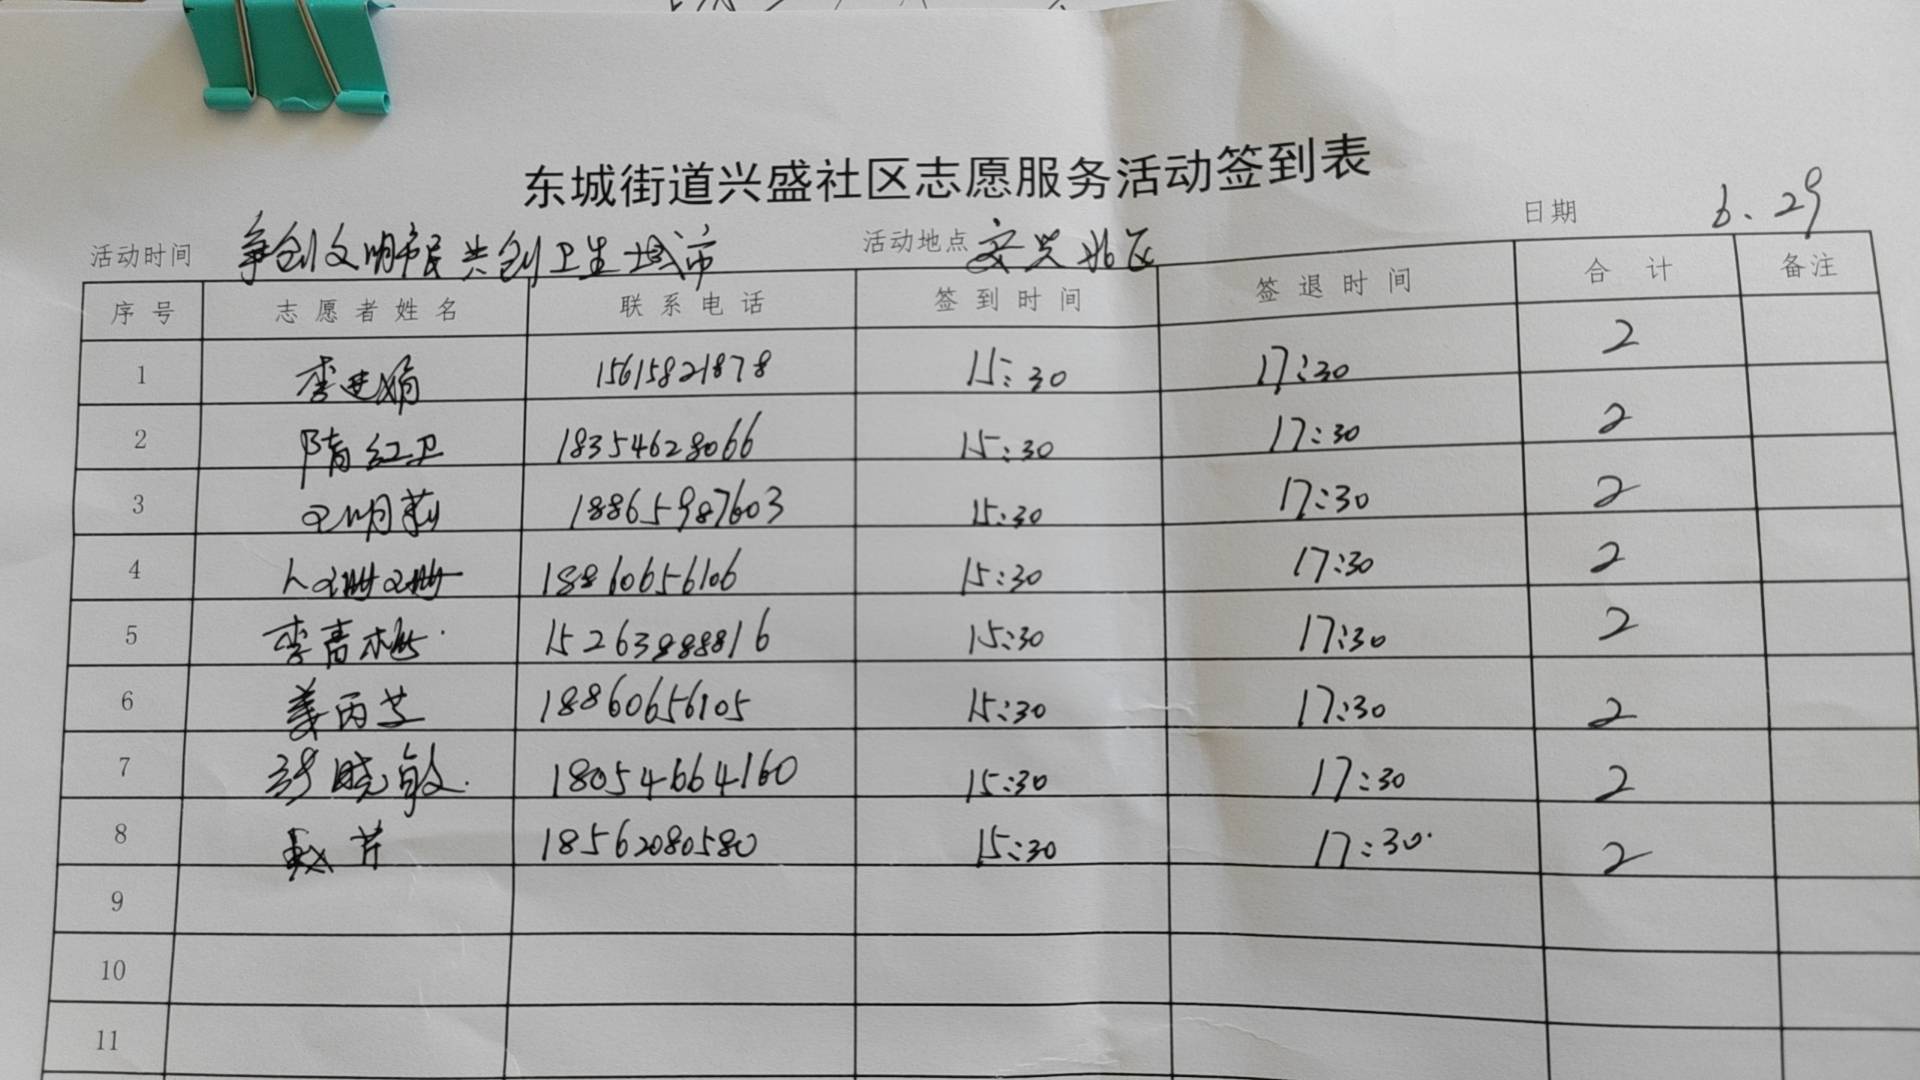 东城街道兴盛社区志愿服务活动签到表
活动时间 争创文明市民共创卫生城市 活动地点 安兴北区 日期 6.29
序号 志愿者姓名 联系电话 签到时间 签退时间 合计 备注
1 李建娟 15615821878 15:30 17:30 2
2 隋红卫 18354628066 15:30 17:30 2
3 明莉 18865987603 15:30 17:30 2
4 18860656106 15:30 17:30 2
5 李青梅 15263988816 15:30 17:30 2
6 姜丙芝 18860656105 15:30 17:30 2
7 晓敏 18054664160 15:30 17:30 2
8 赵芹 18562080580 15:30 17:30 2
9
10
11